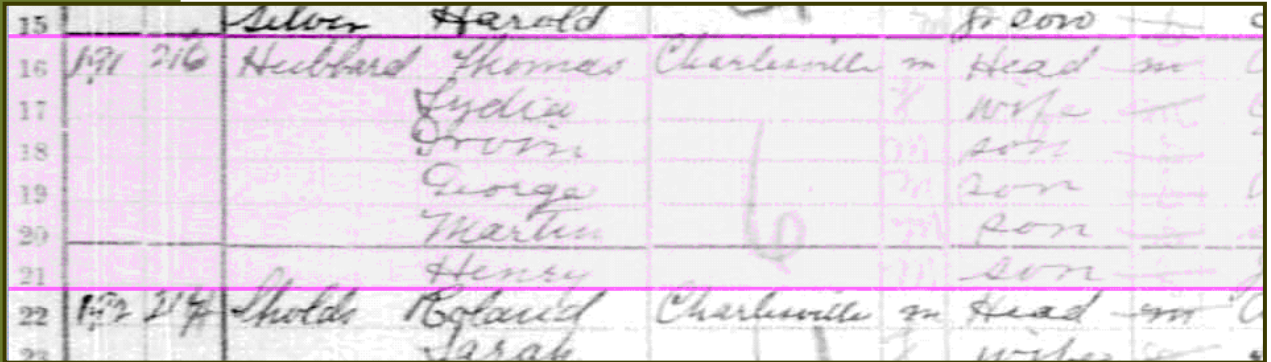 15 Silver Harold gr son
16 171 216 Hubbard Thomas Charlesville m Head m
17 Lydia wife m
18 Irvin m son
19 George m son
20 Martin m son
21 Henry m son
22 172 217 Sholds Roland Charlesville m Head m
23 Sarah wife
6